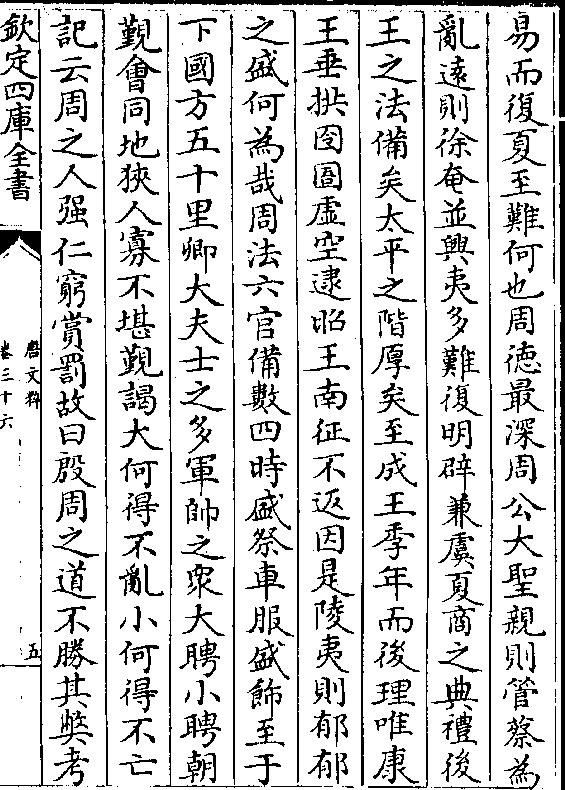 易而復夏至難何也周徳最深周公大聖親則管蔡為
亂遠則徐奄並興夷多難復明辟兼虞夏商之典禮後
王之法備矣太平之階厚矣至成王季年而後理唯康
王垂拱囹圄虛空逮昭王南征不返因是陵夷則郁郁
之盛何為哉周法六官備數四時盛祭車服盛飾至于
下國方五十里卿大夫士之多軍帥之衆大聘小聘朝
覲會同地狹人寡不堪覲謁大何得不亂小何得不亡
記云周之人强仁窮賞罰故曰殷周之道不勝其獘考
欽定四庫全書
唐文粹
卷三十六
五